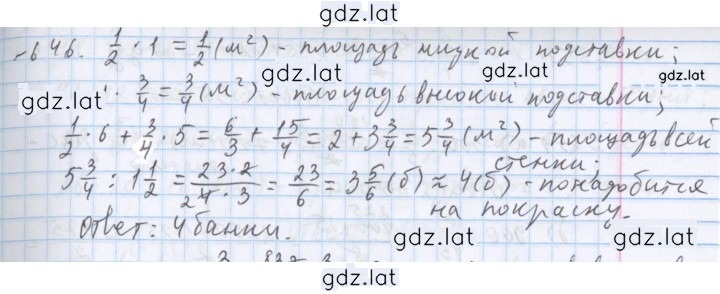 gdz.lat
№646. 1/2 · 1 = 1/2 (м²) - площадь низкой подставки;
gdz.lat gdz.lat gdz.lat
· 3/4 = 3/4 (м²) - площадь высокой подставки;
gdz.lat
1/2 · 6 + 3/4 · 5 = 6/3 + 15/4 = 2 + 3 3/4 = 5 3/4 (м²) - площадь всей
стенки;
5 3/4 : 1 1/2 = 23·2/4·3 = 23/6 = 3 5/6 (б) ≈ 4 (б) - понадобится
на покраску.
Ответ: 4 банки.
gdz.lat gdz.lat
gdz.lat